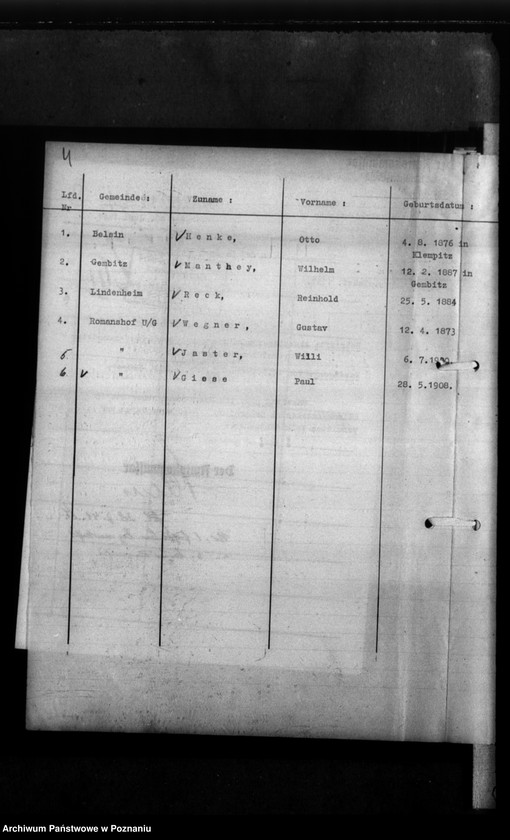 4
Lfd. Nr Gemeinded: Zuname : Vorname : Geburtsdatum :
1. Belsin Henke, Otto 4. 8. 1876 in Klempitz
2. Gembitz Manthey, Wilhelm 12. 2. 1887 in Gembitz
3. Lindenheim Reck, Reinhold 25. 5. 1884
4. Romanshof U/G Wegner, Gustav 12. 4. 1873
5 " Jaster, Willi 6. 7.
6 " Giese Paul 28. 5.1908.
Archiwum Państwowe w Poznaniu